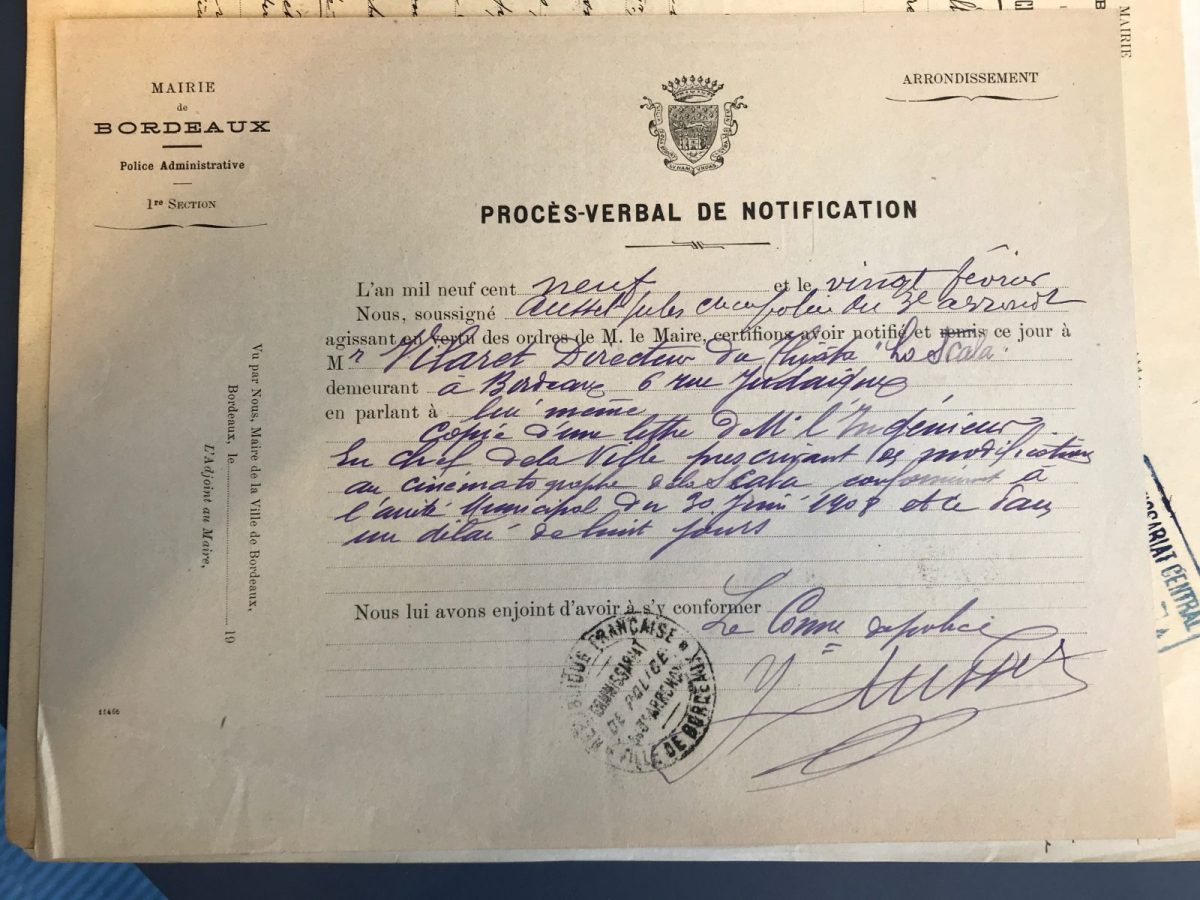 MAIRIE
de
BORDEAUX
Police Administrative
1re SECTION
ARRONDISSEMENT
PROCÈS-VERBAL DE NOTIFICATION
L'an mil neuf cent neuf et le vingt février
Nous, soussigné Aussel Jules du 3e arrondt
agissant en vertu des ordres de M. le Maire, certifions avoir notifié et remis ce jour à
Mr Vilaret Directeur du Théâtre "La Scala
demeurant à Bordeaux 6 rue Judaique
en parlant à lui même
Copie d'une lettre de Mr l'Ingénieur
En chef de la Ville prescrivant modifications
au cinématographe de la Scala conformément à
l'arrêté Municipal du 30 Juin 1908 et ce dans
un délai de huit jours
Nous lui avons enjoint d'avoir à s'y conformer
Le Comre de police
J Aussel
RÉPUBLIQUE FRANÇAISE
COMMISSARIAT
DE POLICE
DU 3e ARRONDt
VILLE DE BORDEAUX
Vu par Nous, Maire de la Ville de Bordeaux,
Bordeaux, le 19
L'Adjoint au Maire,
11466
MAIRIE
SSARIAT CENTRAL